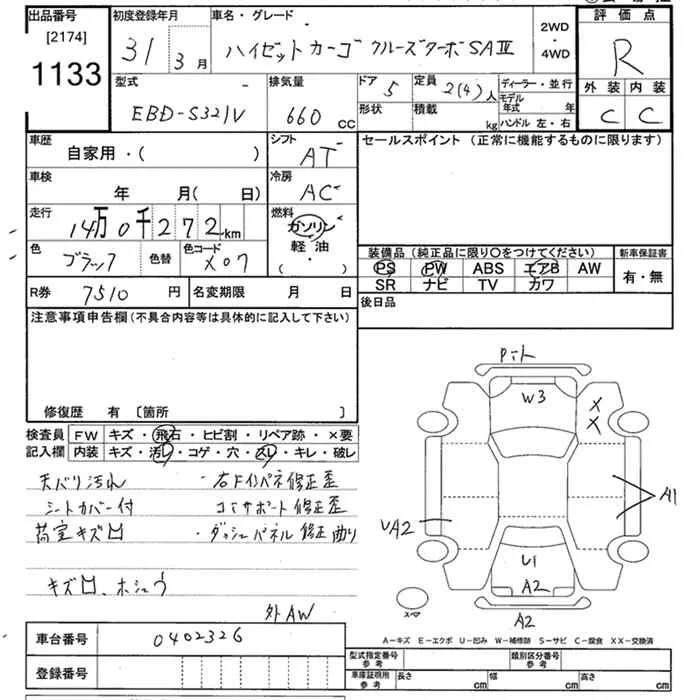 出品番号
[2174]
1133
初度登録年月
31 3 月
車名・グレード
ハイゼットカーゴ クルーズターボSAⅢ
2WD
・
4WD
評価点
R
外装 内装
C C
型式
EBD-S321V
排気量
660 CC
ドア 5
形状
定員 2(4)人
積載 kg
ディーラー・並行
モデル年式 年
ハンドル 左・右
車歴
自家用・( )
シフト
AT
車検
年 月( 日)
冷房
AC
走行
14万0千272km
燃料
ガソリン
軽油
( ・ )
色
ブラック
色替
色コード
X07
R券 7510 円
名変期限 月 日
セールスポイント (正常に機能するものに限ります)
装備品 (純正品に限り○をつけてください)
PS PW ABS エアB AW
SR ナビ TV カワ
新車保証書
有・無
後日品
注意事項申告欄(不具合内容等は具体的に記入して下さい)
修復歴 有 〔箇所 〕
検査員記入欄
FW キズ・飛石・ヒビ割・リペア跡・×要
内装 キズ・汚レ・コゲ・穴・スレ・キレ・破レ
天バリ汚れ
シートカバー付
荷室キズ凹
・右Fインパネ修正歪
コアサポート修正歪
・ダッシュパネル修正曲り
キズ凹、ホシュウ
外AW
車台番号 0402326
登録番号
W3
X
X
A1
UA2
U1
A2
A2
スペア
A-キズ E-エクボ U-凹み W-補修跡 S-サビ C-腐食 XX-交換済
型式指定番号 参考
類別区分番号 参考
車庫証明用 参考
長さ cm
幅 cm
高さ cm